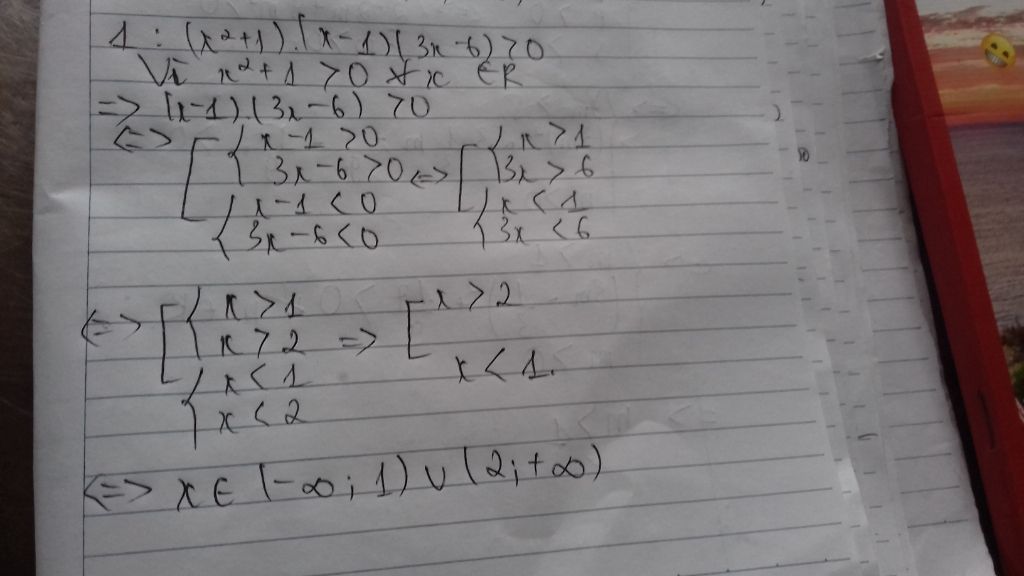 1: (x²+1).(x-1)(3x-6)>0
Vì x²+1 >0 ∀x ∈R
=> (x-1).(3x-6) >0
<=> [ { x-1 >0 <=> [ { x>1
3x-6 >0 3x > 6
{ x-1 <0 { x < 1
3x-6<0 3x <6
<=> [ { x>1 => [ x>2
x>2
{ x<1 x<1.
x<2
<=> x∈ (-∞; 1) ∪ (2;+∞)